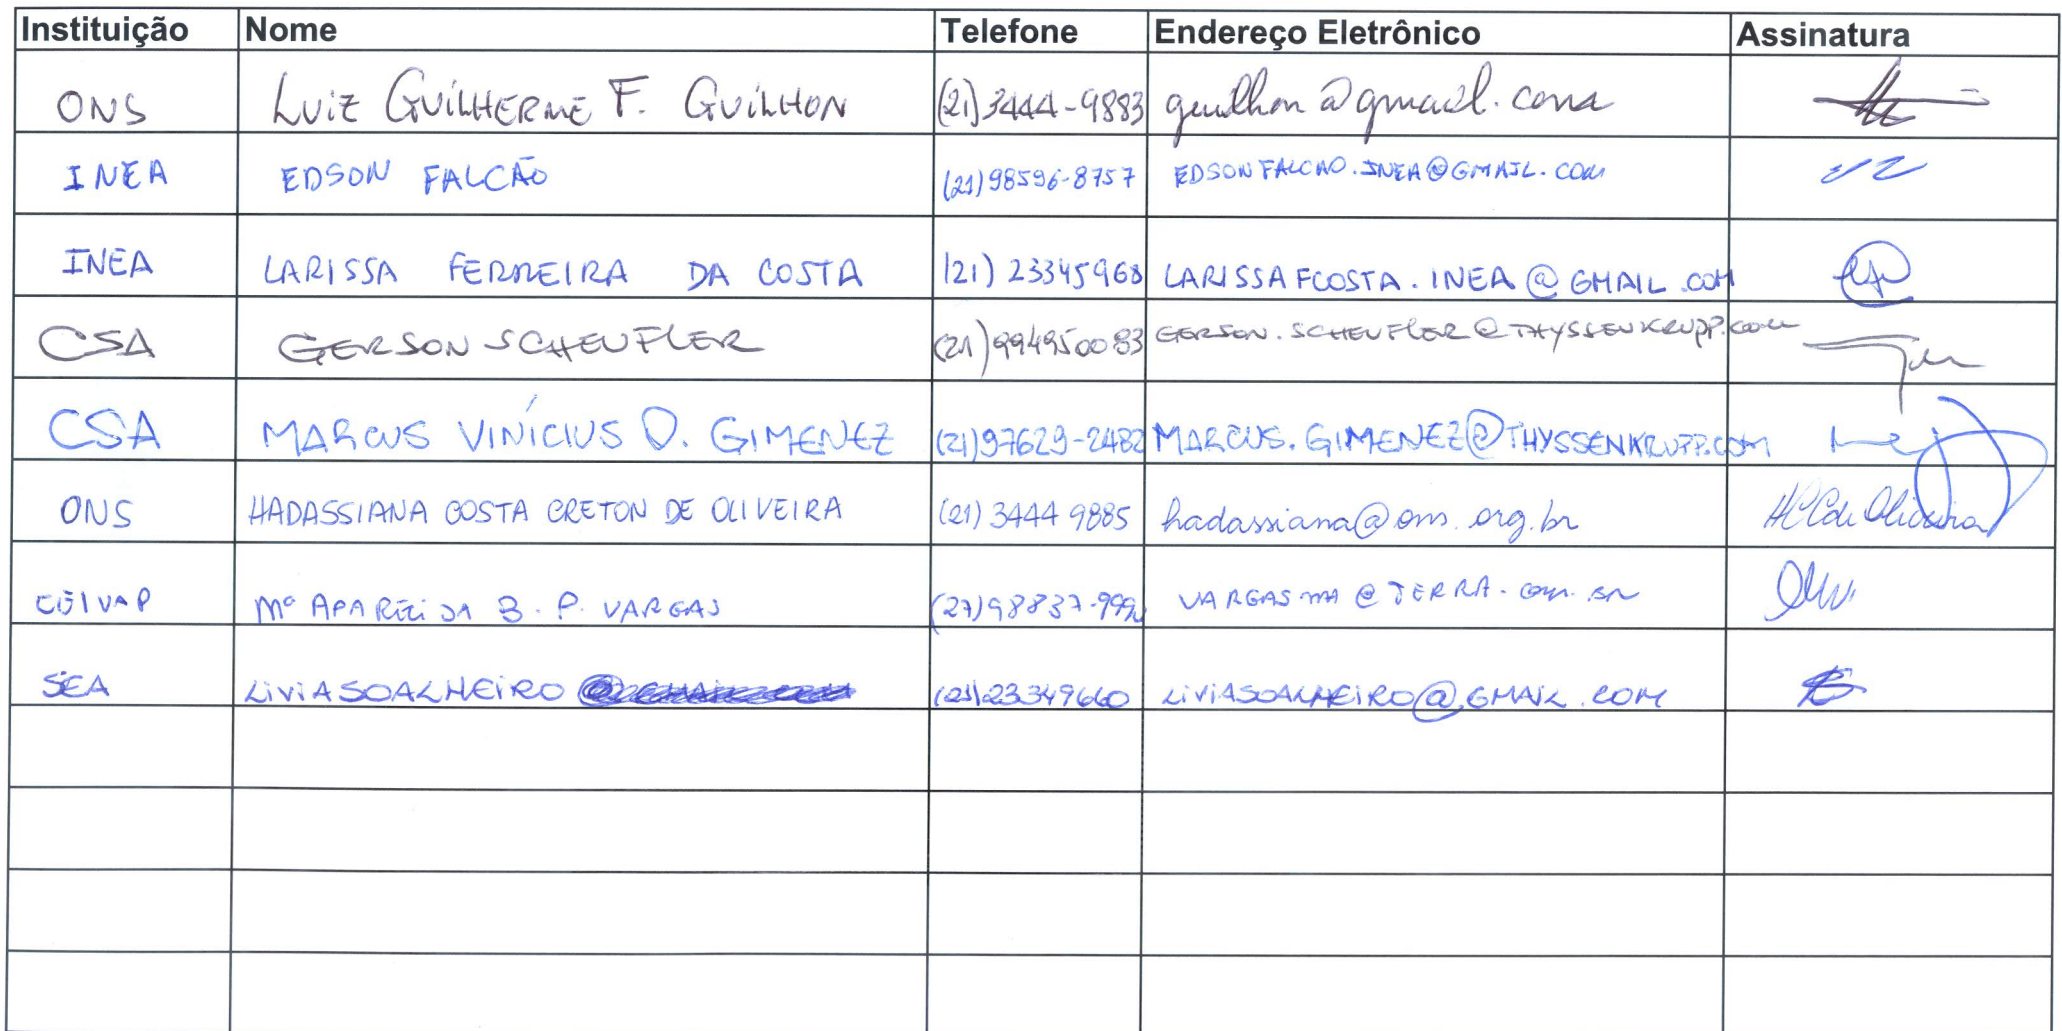 Instituição Nome Telefone Endereço Eletrônico Assinatura
ONS LUIZ GUILHERME F. GUILHON (21) 3444-9883 guilhon@gmail.com
INEA EDSON FALCÃO (21) 98596-8757 EDSONFALCAO.INEA@GMAIL.COM
INEA LARISSA FERREIRA DA COSTA (21) 23345968 LARISSAFCOSTA.INEA@GMAIL.COM
CSA GERSON SCHEUFLER (21) 994950083 GERSON.SCHEUFLER@THYSSENKRUPP.com
CSA MARCUS VINÍCIUS D. GIMENEZ (21) 97629-2482 MARCUS.GIMENEZ@THYSSENKRUPP.COM
ONS HADASSIANA COSTA CRETON DE OLIVEIRA (21) 3444 9885 hadassiana@ons.org.br HCCde Oliveira
CEIVAP Mª APARECIDA B. P. VARGAS VARGASMA@TERRA.com.br
SEA LiViASOALHEiRO (21) 23349660 LiViASOALHEiRO@GMAiL.COM